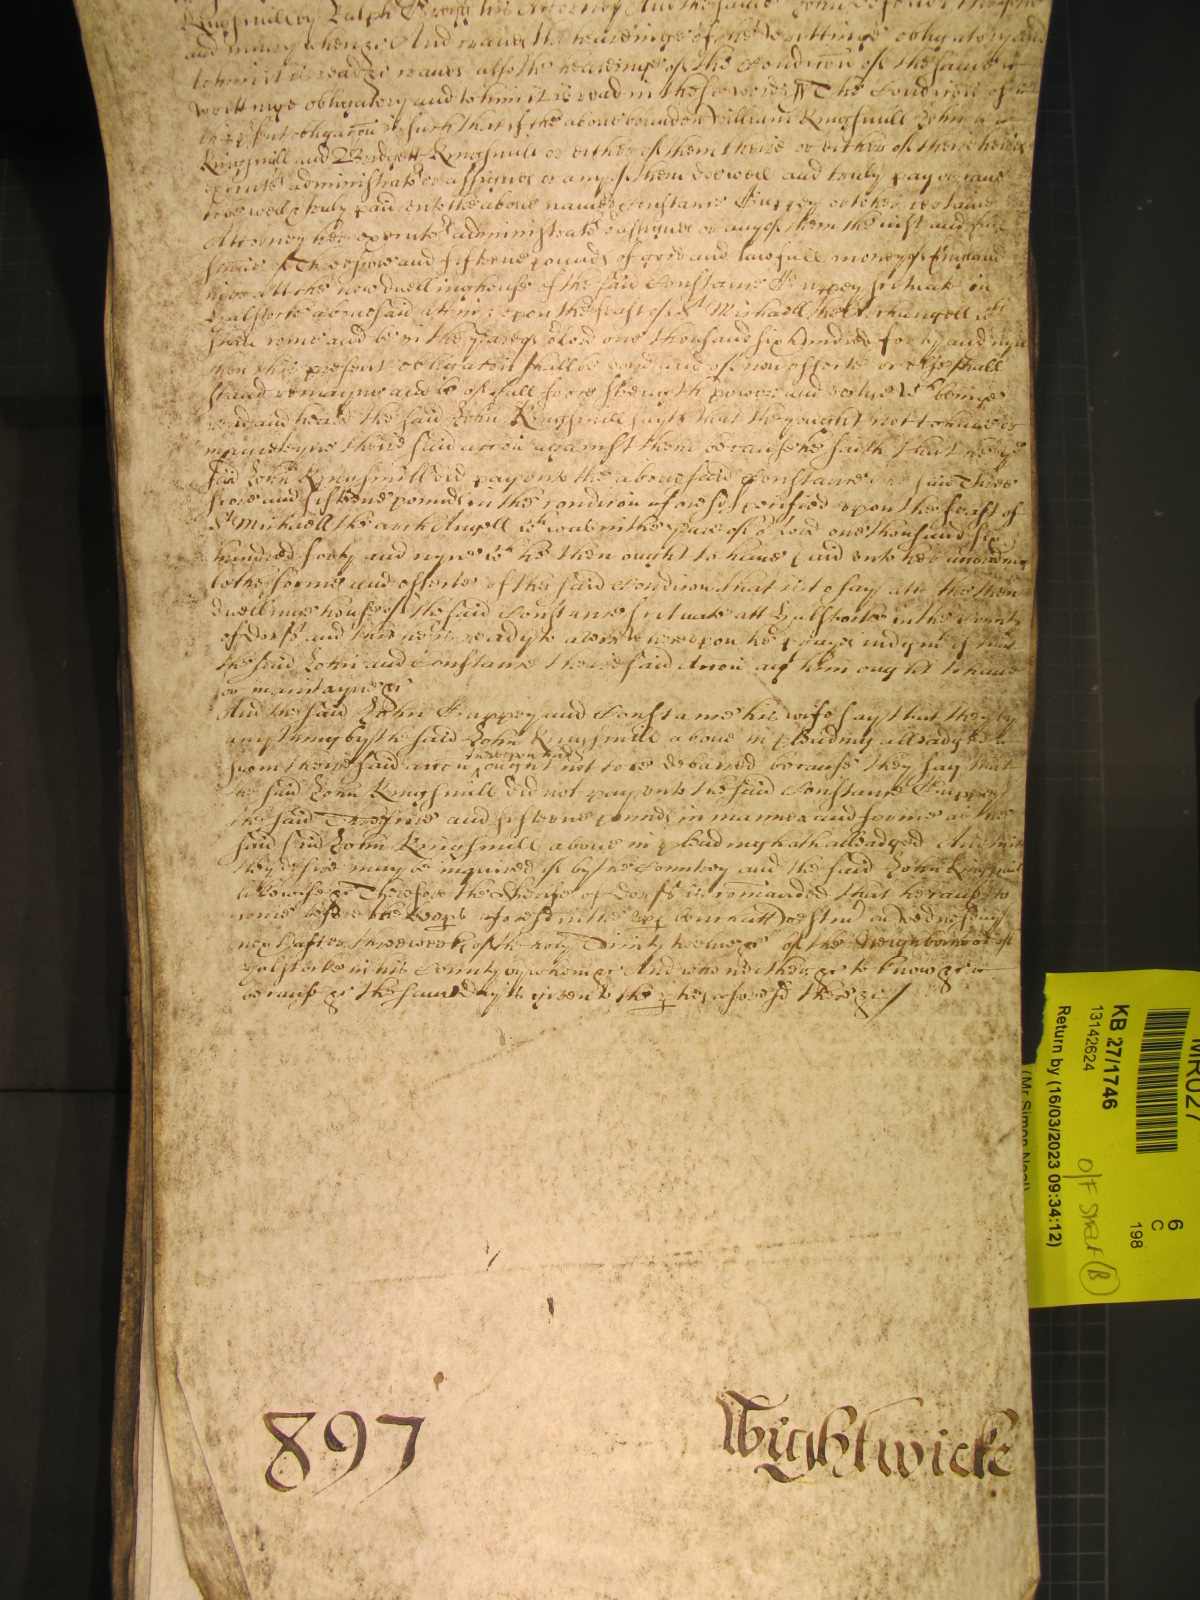 Kingsmill by Ralph his Attorney And the same John
and iniury whenz And craues the heareinge of the writtinge obligatory and
to him it is read &c craues also the heareinge of the Condicon of the same
writtinge obligatory and to him it is read in these words The Condicon of
this psent obligacon is such that if the aboue bounden William Kingsmill John
Kingsmill and Bridgett Kingsmill or either of them theire or either of theire heires
administrat or assignes or any of them doe well and truly pay or cause
to be well & truly paid vnto the aboue named Constance Puppey or to her certaine
Attorney her execut administrat assignes or any of them the iust and full
some of Threescore and fifteene pounds of good and lawfull money of England
att the now dwellinghouse of the said Constance Puppey scituate in
abouesaid att in & vpon the feast of St Michaell the Archangell wch
shall come and be in the yeare of or Lord one thousand six hundred forty and nyne
then this present obligation shall be voyd and of non effecte or else shall
stand remayne and be of full force strength power and vertue wch beinge
read and heard the said John Kingsmill sayth that they ought not to haue or
mayneteyne theire said accon against them because he saith that he ye
said John Kingsmill did pay vnto the abouesaid Constance the said Three
score and fifteene pounds in the condicon aforesd specified vpon the feast of
St Michaell the arch Angell wch was in the yeare of or Lord one thousand six
hundred forty and nyne wch he then ought to haue paid vnto her accordinge
to the forme and effecte of the said Condicon that is to say att the then
dwellinge house of the said Constance scituate att in the County
of Dorst and this he is ready to averr wherevpon he prayes iudgmt if the
the said John and Constance theire said Accon agt him ought to haue
or mantayne &c
And the said John Puppey and Constance his wife say that they by
any thinge by the said John Kingsmill aboue in pleadinge alleadged
from theire said accon ought not to be debarred because they say that
the said John Kingsmill did not pay vnto the said Constance Puppey
the said Threescore and fifteene pounds in manner and forme as the
said said John Kingsmill aboue in pleadinge hath alleadged And this
they desire may be inquired of by the Countrey and the said John Kingsmill
likewise &c Therefore the Sheriffe of Dorst is comanded that he cause to
come before the aforesd in the on Wednesday
next after three weekes of the holy Trinity twelue &c of the neighborhood of
in his County by whom &c And who neither &c to know &c
because &c the same day is giuen to the ptyes aforesd there &c
897
Wightwicke
MR027
KB 27/1746
13142624
Return by (16/03/2023 09:34:12)
(Mr Simon Neal)
O/F Shelf B
6
C
198